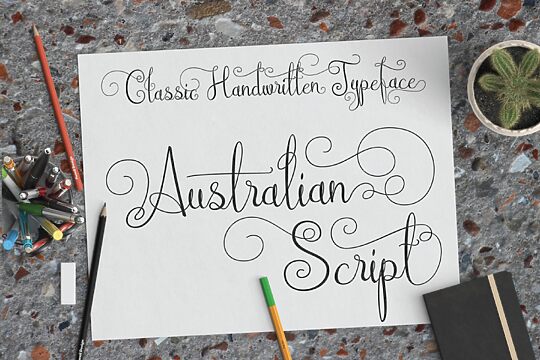 Classic Handwritten Typeface
Australian
Script